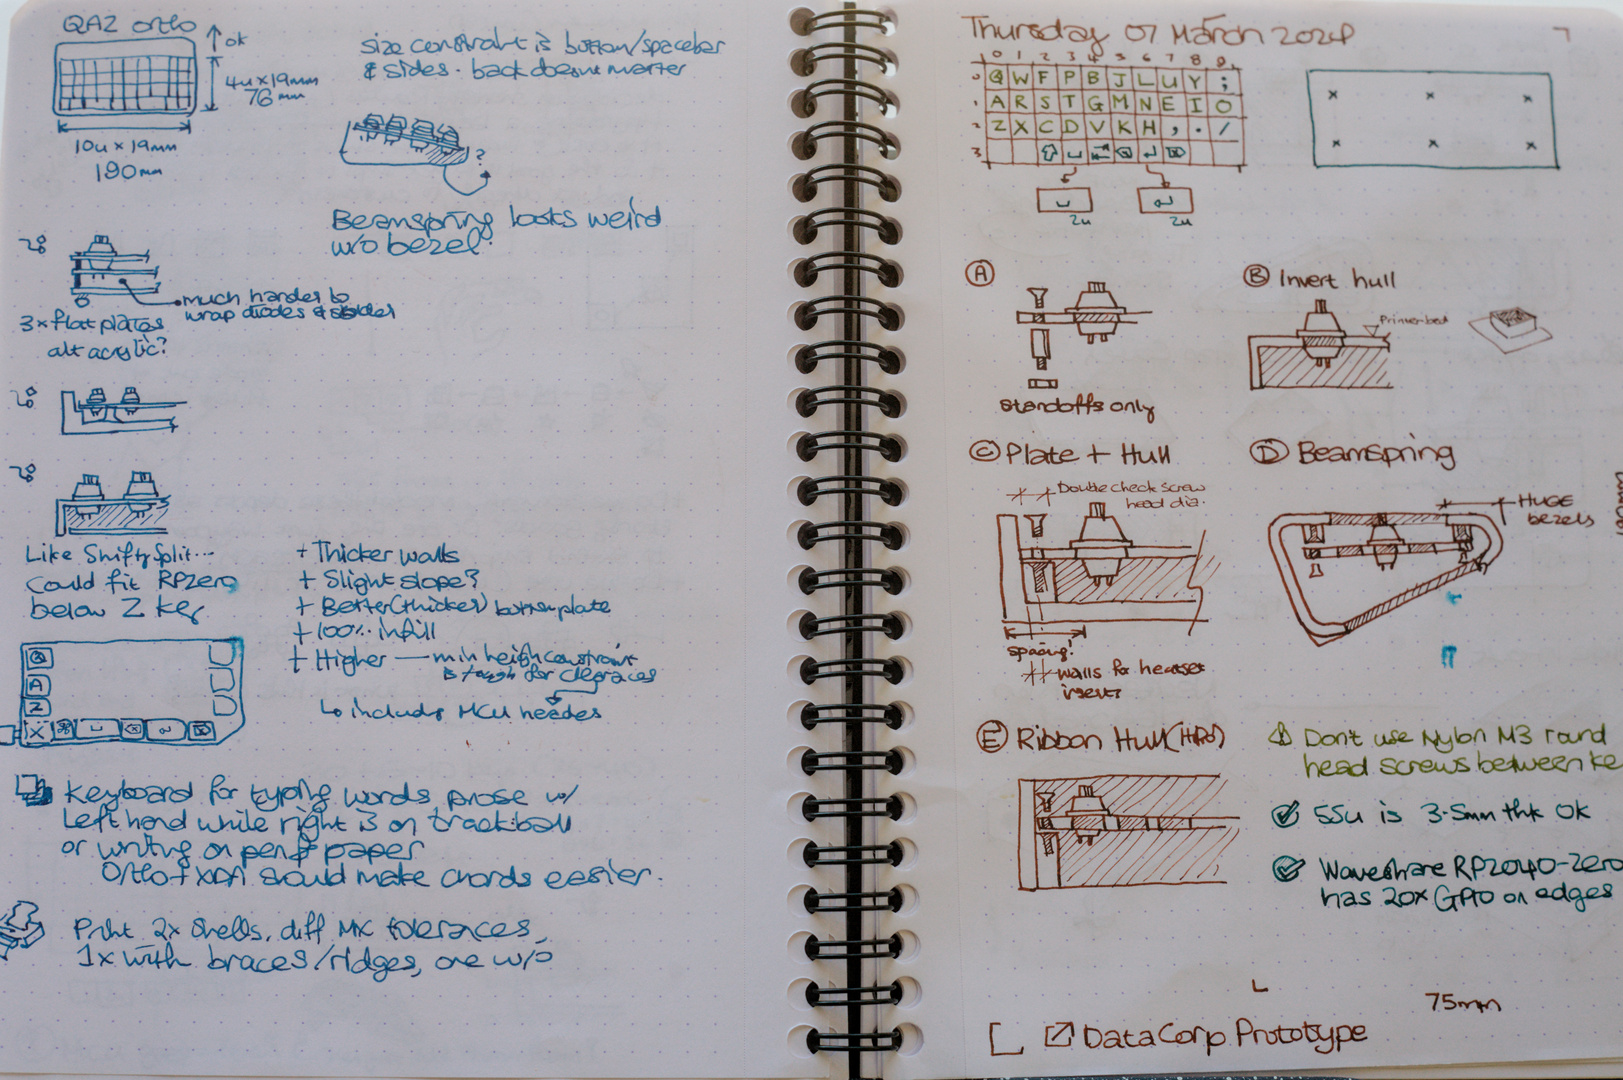 QAZ ortho
ok
4u x 19mm
76mm
10u x 19mm
190mm
size constraint is bottom/spacebar
& sides. back doesn't matter
?
Beamspring looks weird
w/o bezel.
much harder to
wrap diodes & solder
3x flat plates
alt acrylic?
Like ShiftySplit...
Could fit RPZero
below Z key
+ Thicker walls
+ Slight slope?
+ Better (thicker) bottom plate
+ 100% infill
+ Higher — min height constraint
is tough for clearances
↳ includes MCU needs
Q
A
Z
Keyboard for typing words, prose w/
left hand while right is on trackball
or writing on pen & paper
Ortho + XDA should make chords easier.
Print 2x shells, diff MX tolerances,
1x with braces/ridges, one w/o
Thursday 07 March 2024
7
0 1 2 3 4 5 6 7 8 9
0 Q W F P B J L U Y ;
1 A R S T G M N E I O
2 Z X C D V K H , . /
3
2u
2u
A
standoffs only
B Invert hull
Printer bed
C Plate + Hull
Double check screw
head dia.
spacing!
walls for heatset
inserts
D Beamspring
HUGE
bezels
E Ribbon Hull
Don't use Nylon M3 round
head screws between
SSU is 3.5mm thk ok
Waveshare RP2040-Zero
has 20x GPIO on edges
75mm
DataCorp Prototype